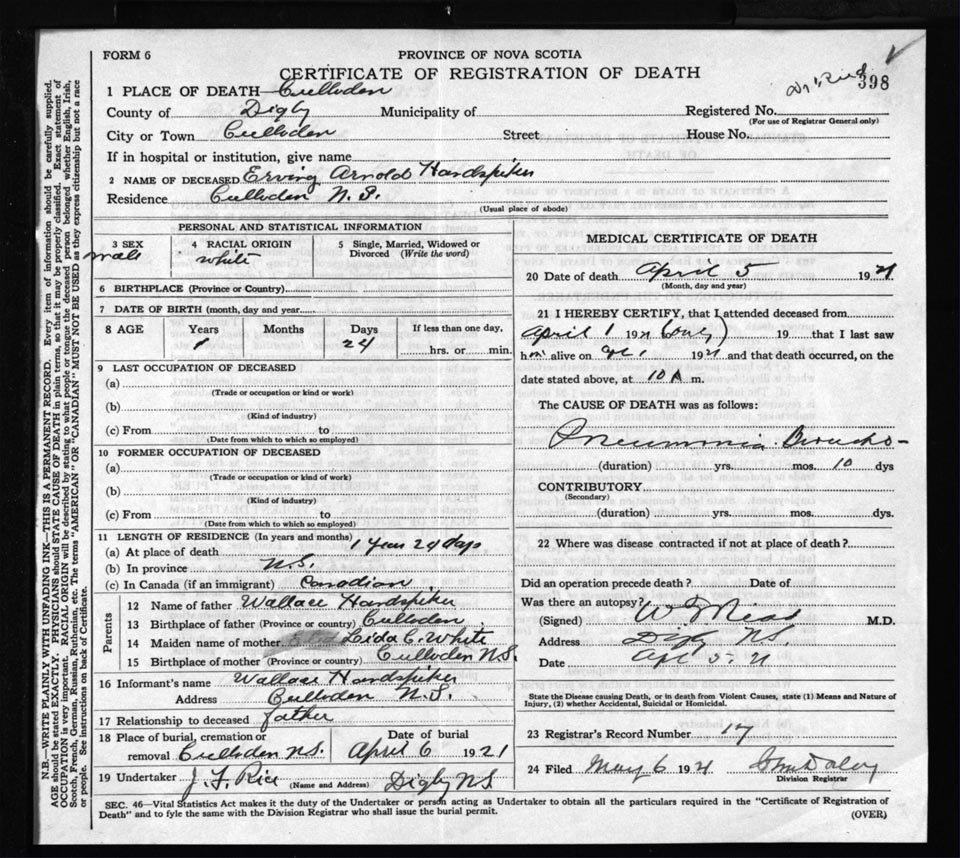 FORM 6
PROVINCE OF NOVA SCOTIA
CERTIFICATE OF REGISTRATION OF DEATH
398
1 PLACE OF DEATH—Culloden
County of Digby Municipality of Registered No.
(For use of Registrar General only)
City or Town Culloden Street House No.
If in hospital or institution, give name
2 NAME OF DECEASED Erving Arnold Handspiker
Residence Culloden N.S.
(Usual place of abode)
PERSONAL AND STATISTICAL INFORMATION
3 SEX male
4 RACIAL ORIGIN white
5 Single, Married, Widowed or Divorced (Write the word)
6 BIRTHPLACE (Province or Country)
7 DATE OF BIRTH (month, day and year)
8 AGE Years Months Days If less than one day,
1 24 hrs. or min.
9 LAST OCCUPATION OF DECEASED
(a)
(Trade or occupation or kind or work)
(b)
(Kind of industry)
(c) From to
(Date from which to which so employed)
10 FORMER OCCUPATION OF DECEASED
(a)
(Trade or occupation or kind or work)
(b)
(Kind of industry)
(c) From to
(Date from which to which so employed)
11 LENGTH OF RESIDENCE (In years and months)
(a) At place of death 1 year 24 days
(b) In province N.S.
(c) In Canada (if an immigrant) Canadian
Parents
12 Name of father Wallace Handspiker
13 Birthplace of father (Province or country) Culloden
14 Maiden name of mother Leida C. White
15 Birthplace of mother (Province or country) Culloden N.S.
16 Informant's name Wallace Handspiker
Address Culloden N.S.
17 Relationship to deceased father
18 Place of burial, cremation or removal Culloden N.S.
Date of burial April 6 1921
19 Undertaker J. F. Rice Digby N.S
(Name and Address)
MEDICAL CERTIFICATE OF DEATH
20 Date of death April 5 1921
(Month, day and year)
21 I HEREBY CERTIFY, that I attended deceased from
April 1 1921 (only) 19 that I last saw
him alive on Apl 1 1921 and that death occurred, on the
date stated above, at 10 A m.
The CAUSE OF DEATH was as follows:
Pneumonia Broncho-
(duration) yrs. mos. 10 dys
CONTRIBUTORY
(Secondary)
(duration) yrs. mos. dys.
22 Where was disease contracted if not at place of death?
Did an operation precede death? Date of
Was there an autopsy?
(Signed) M.D.
Address Digby NS
Date Apl 5. 21
State the Disease causing Death, or in death from Violent Causes, state (1) Means and Nature of
Injury, (2) whether Accidental, Suicidal or Homicidal.
23 Registrar's Record Number 17
24 Filed May 6 1921
Division Registrar
SEC. 46—Vital Statistics Act makes it the duty of the Undertaker or person acting as Undertaker to obtain all the particulars required in the "Certificate of Registration of
Death" and to fyle the same with the Division Registrar who shall issue the burial permit.
(OVER)
N.B.—WRITE PLAINLY WITH UNFADING INK—THIS IS A PERMANENT RECORD. Every item of information should be carefully supplied.
AGE should be stated EXACTLY. PHYSICIANS should STATE CAUSE OF DEATH in plain terms, so that it may be properly classified. Exact statement of
OCCUPATION is very important. RACIAL ORIGIN will be described by stating to what people or tongue the deceased person belonged whether English, Irish,
Scotch, French, German, Russian, Ruthenian, etc. The terms "AMERICAN" OR "CANADIAN" MUST NOT BE USED as they express citizenship but not a race
or people. See instructions on back of Certificate.